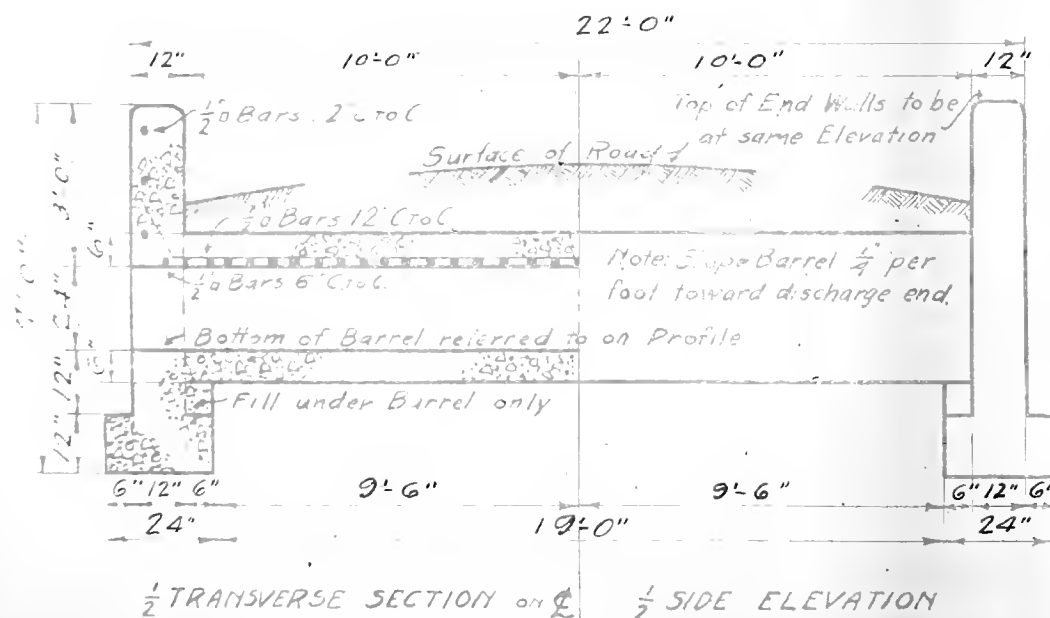 22'-0"
12" 10'-0" 10'-0" 12"
½"▫ Bars 2' C to C
Top of End Walls to be
at same Elevation
Surface of Road
½"▫ Bars 12" C to C
3'-0"
6"
½"▫ Bars 6" C to C
Note: Slope Barrel ¼" per
foot toward discharge end.
24"
Bottom of Barrel referred to on Profile
6"
12"
Fill under Barrel only
12"
6" 12" 6" 9'-6" 9'-6" 6" 12" 6"
24" 19'-0" 24"
½ TRANSVERSE SECTION on ℄ ½ SIDE ELEVATION